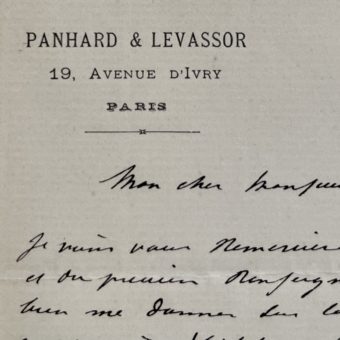 PANHARD & LEVASSOR
19, AVENUE D'IVRY
PARIS
Mon cher Monsieur
Je viens vous remercier
et du premier Renseign
bien me donner sur la